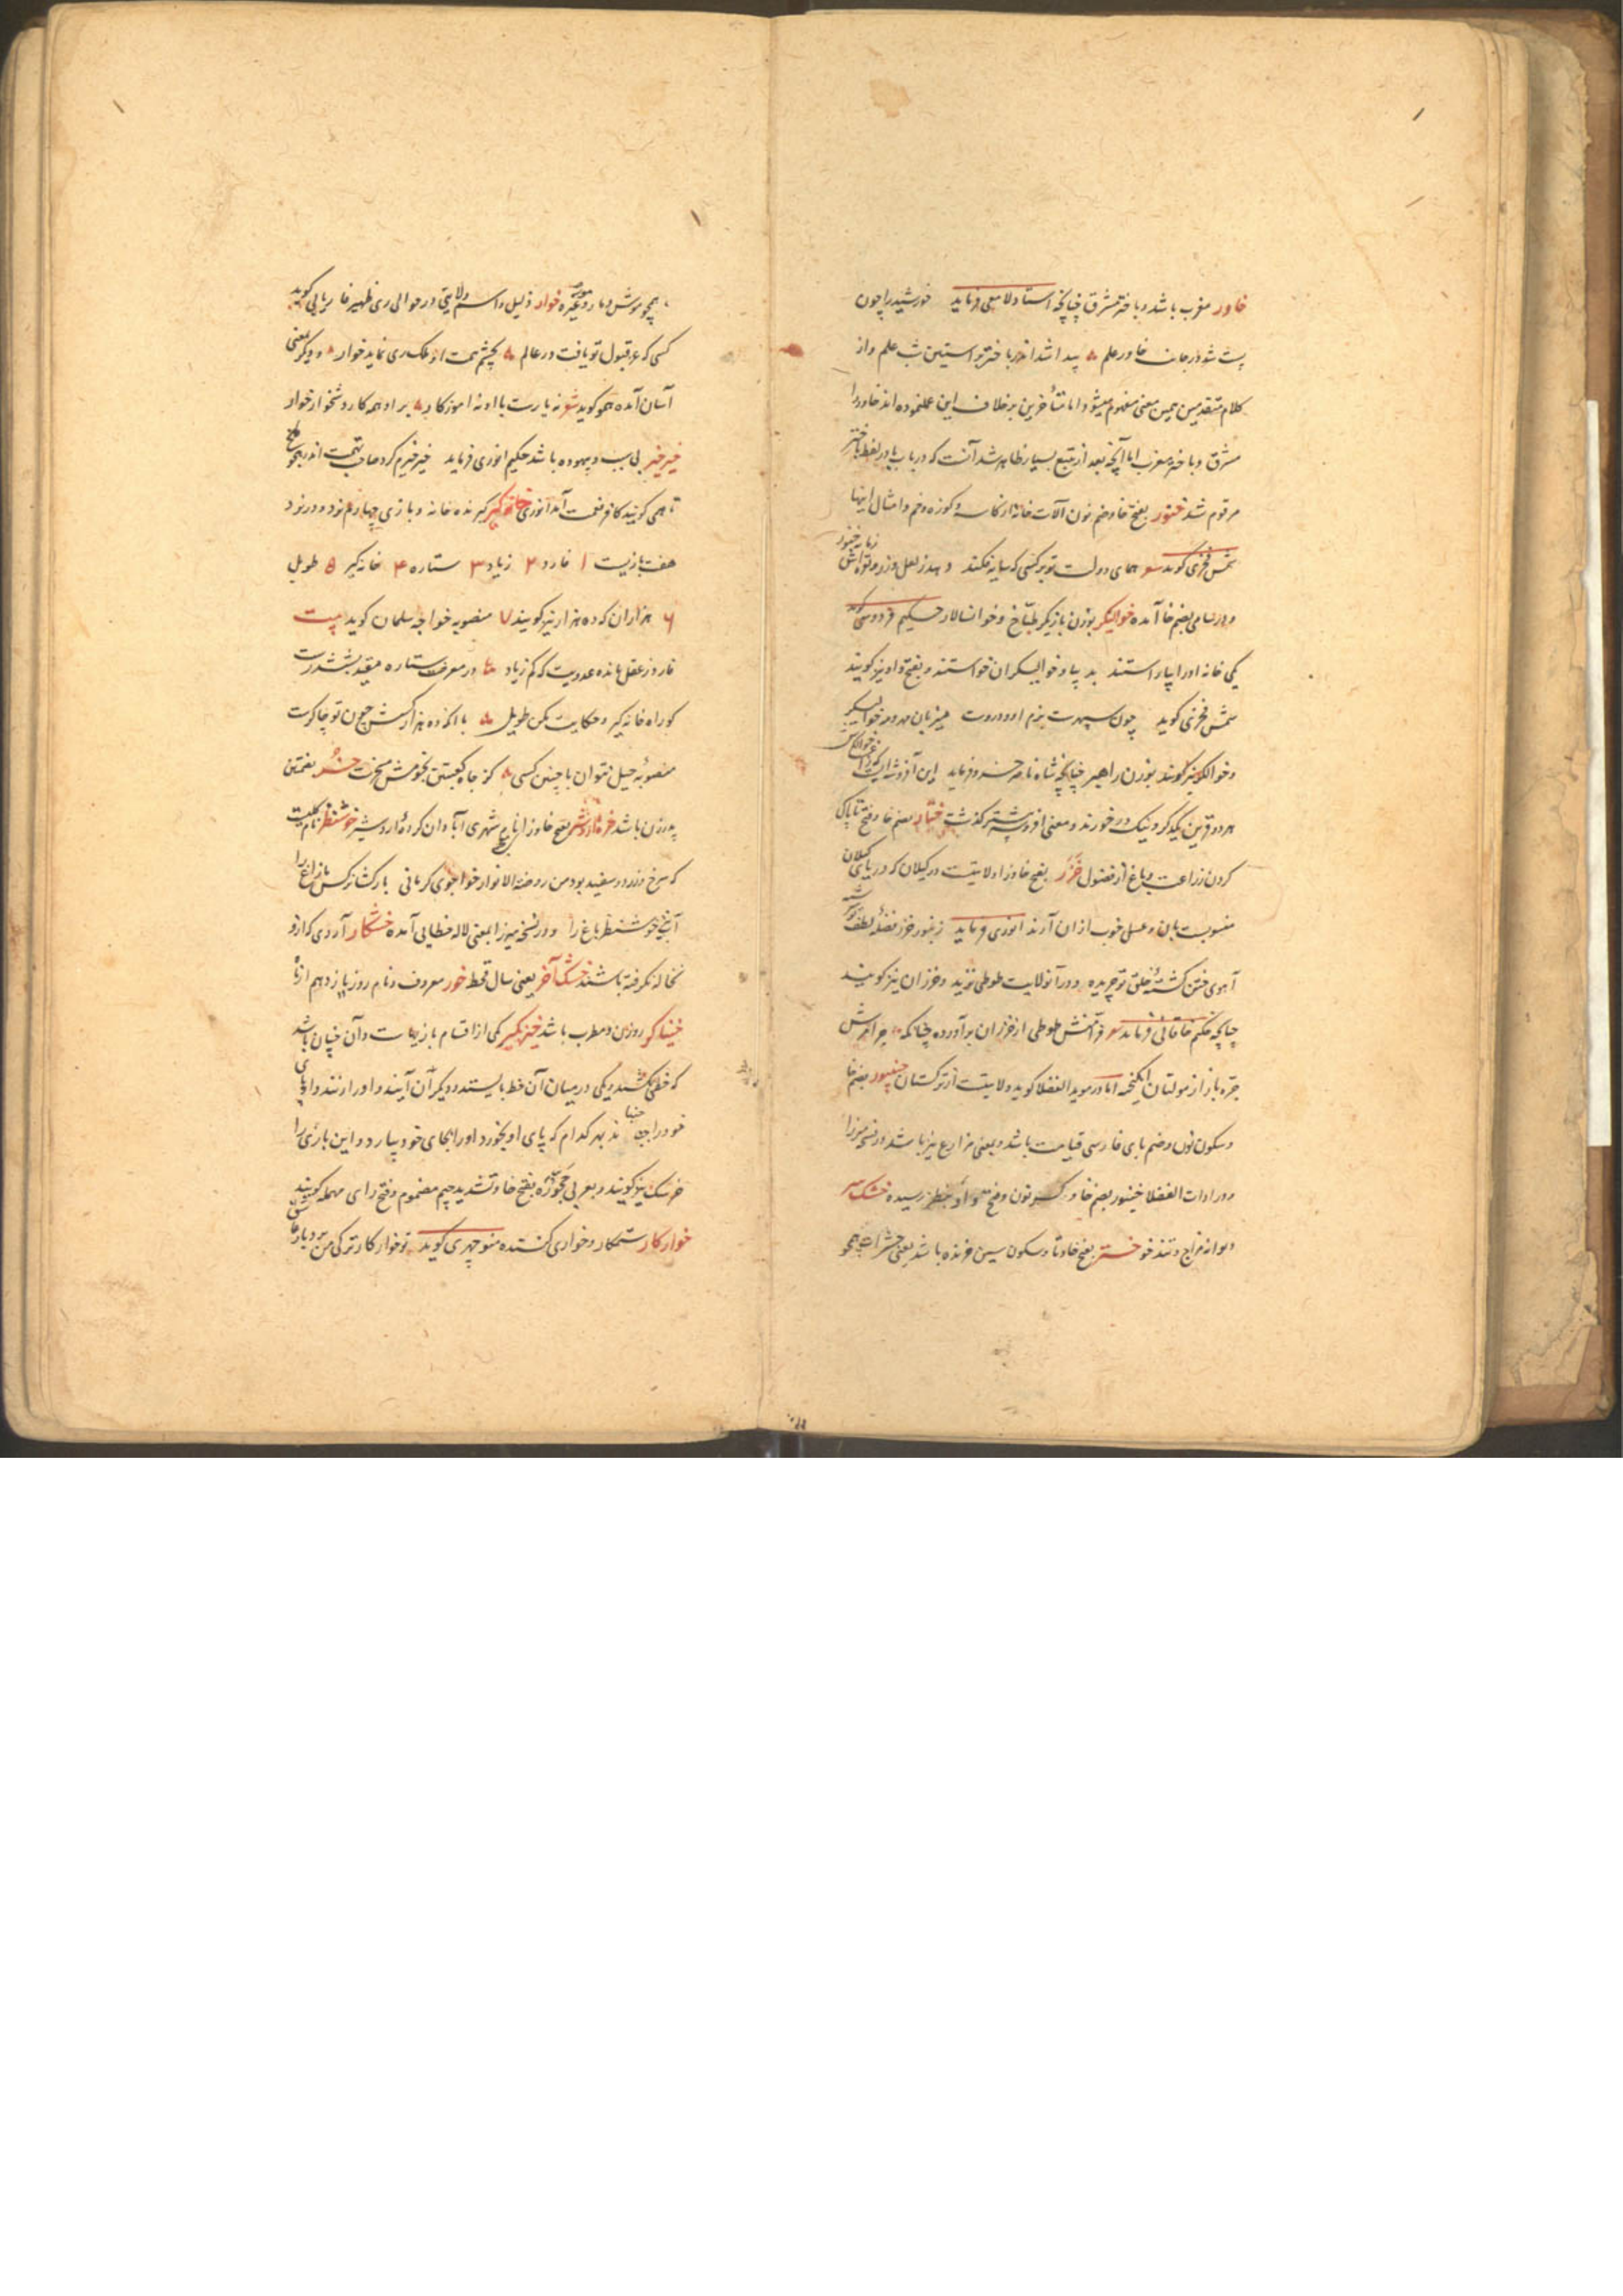 خاور مغرب باشد و باختر مشرق چنانچه استاد لامعی فرماید خورشید را چون
پست شد در جانب خاور علم پیدا شد از باختر بر آستین شب علم و از
کلام متقدمین همین معنی مفهوم میشود اما متأخرین بر خلاف این عمل نموده اند خاور را
مشرق و باختر مغرب اما آنچه بعد از تتبع بسیار ظاهر شد آنست که در باب با در لفظ باختر
مرقوم شد خنور بفتح خا و ضم نون آلات خانه از کاسه و کوزه و خم و امثال اینها
شمس فخری گوید همای دولت تو بر کسی که سایه فکند و هد ز لعل و زر و نقره اش زمانه خنور
و در سامی بضم خا آمده خوالیگر بوزن بازیگر طباخ و خوانسالار حکیم فردوسی گوید
یکی خانه او را بیاراستند به دیبا و خوالیگران خواستند و بفتح واو نیز گویند
شمس فخری گوید چون سپهرت بزم میزبان مه و مهر خوالیگر
و خوالگر نیز گویند بوزن راهبر چنانچه شاه ناصر خسرو فرماید این
هر دو قرین یکدگر و نیک در خورند و معنی افروشه پیشتر گذشت بضم خا و فتح تا پاک
کردن زراعت و باغ از فضول خزر بفتح خا و زا ولایتیست در گیلان که دریای گیلان
منسوبست بآن و عسل خوب از ان آرند انوری فرماید زنبور خزر فضله لطف تو سرشته
آهوی ختن کشته خلق تو چریده و در آن ولایت طوطی نزید و خزران نیز گویند
چنانچه حکیم خاقانی فرماید طوطی از خزران برآورده چنانکه
جره باز از مولتان انگیخته اما در موید الفضلا گوید ولایتیست از ترکستان خنپور بضم خا
و سکون نون و ضم بای فارسی قیامت باشد و بمعنی مزارع نیز باشد در نسخه میرزا
و در ادات الفضلا خینور بضم خا و کسر نون و فتح واو بنظر رسیده خشک سر
دیوانه مزاج و تند خو خستر بفتح خا و تا و سکون سین خزنده باشد یعنی حشرات همچو
همچو موش و مار و مور و غیره خوار ذلیل و اسم ولایتی در حوالی ری ظهیر فاریابی گوید
کسی که عز قبول تو یافت در عالم بچشم همت او ملک ری نماید خوار و دیگر بمعنی
آسان آمده همو گوید نه یارست با او نه آموزگار بر او همه کار دشخوار خوار
خیر خیر بی سبب و بیهوده باشد حکیم انوری فرماید خیر خیرم کرد صاحب تهمت اندر هجو بلخ
تا همی گویند کافر نعمت آمد انوری خانه گیر گیرنده خانه و بازی چهارم نرد و در نرد
هفت بازیست ۱ فارد ۲ زیاد ۳ ستاره ۴ خانه گیر ۵ طویل
۶ هزاران که ده هزار نیز گویند ۷ منصوبه خواجه سلمان گوید بیت
فارد ز عقل مانده عدویت که کم زیاد در معرض ستاره مقید بششدرست
کو راه خانه گیر و حکایت مکن طویل با آنکه ده هزار کسش چون تو چاکرست
منصوبه حیل نتوان با چنین کسی کز جاه کعبتین نجومش مسخرست خسر بضمتین
پدرزن باشد خره اردشیر بفتح خا شهری آبادان کرده اردشیر خوش نظر نام گلیست
که سرخ و زرد و سفید بود من روضة الانوار خواجوی کرمانی بار گشا نرگس باغ را
آینه خوش نظر باغ را و در نسخه میرزا بمعنی لاله خطایی آمده خشکار آردی که ازو
نخاله نگرفته باشند خشک آخر یعنی سال قحط خور معروف و نام روز یازدهم از ماه
خنیاگر رودزن و مطرب باشد خیز بگیر یکی از اقسام بازیهاست و آن چنان باشد
که خطی بکشند و یکی در میان آن خط بایستد و دیگران آیند و او را زنند و او پای
خود را جنباند بهر کدام که پای او بخورد او را بجای خود بیارد و این بازی را
خرسک نیز گویند و بعربی حجوره بفتح حا و تشدید جیم مضموم و فتح رای مهمله گویند
خوارکار ستمکار و خواری کننده منوچهری گوید تو خوارکار ترکی من بردبار عاشق